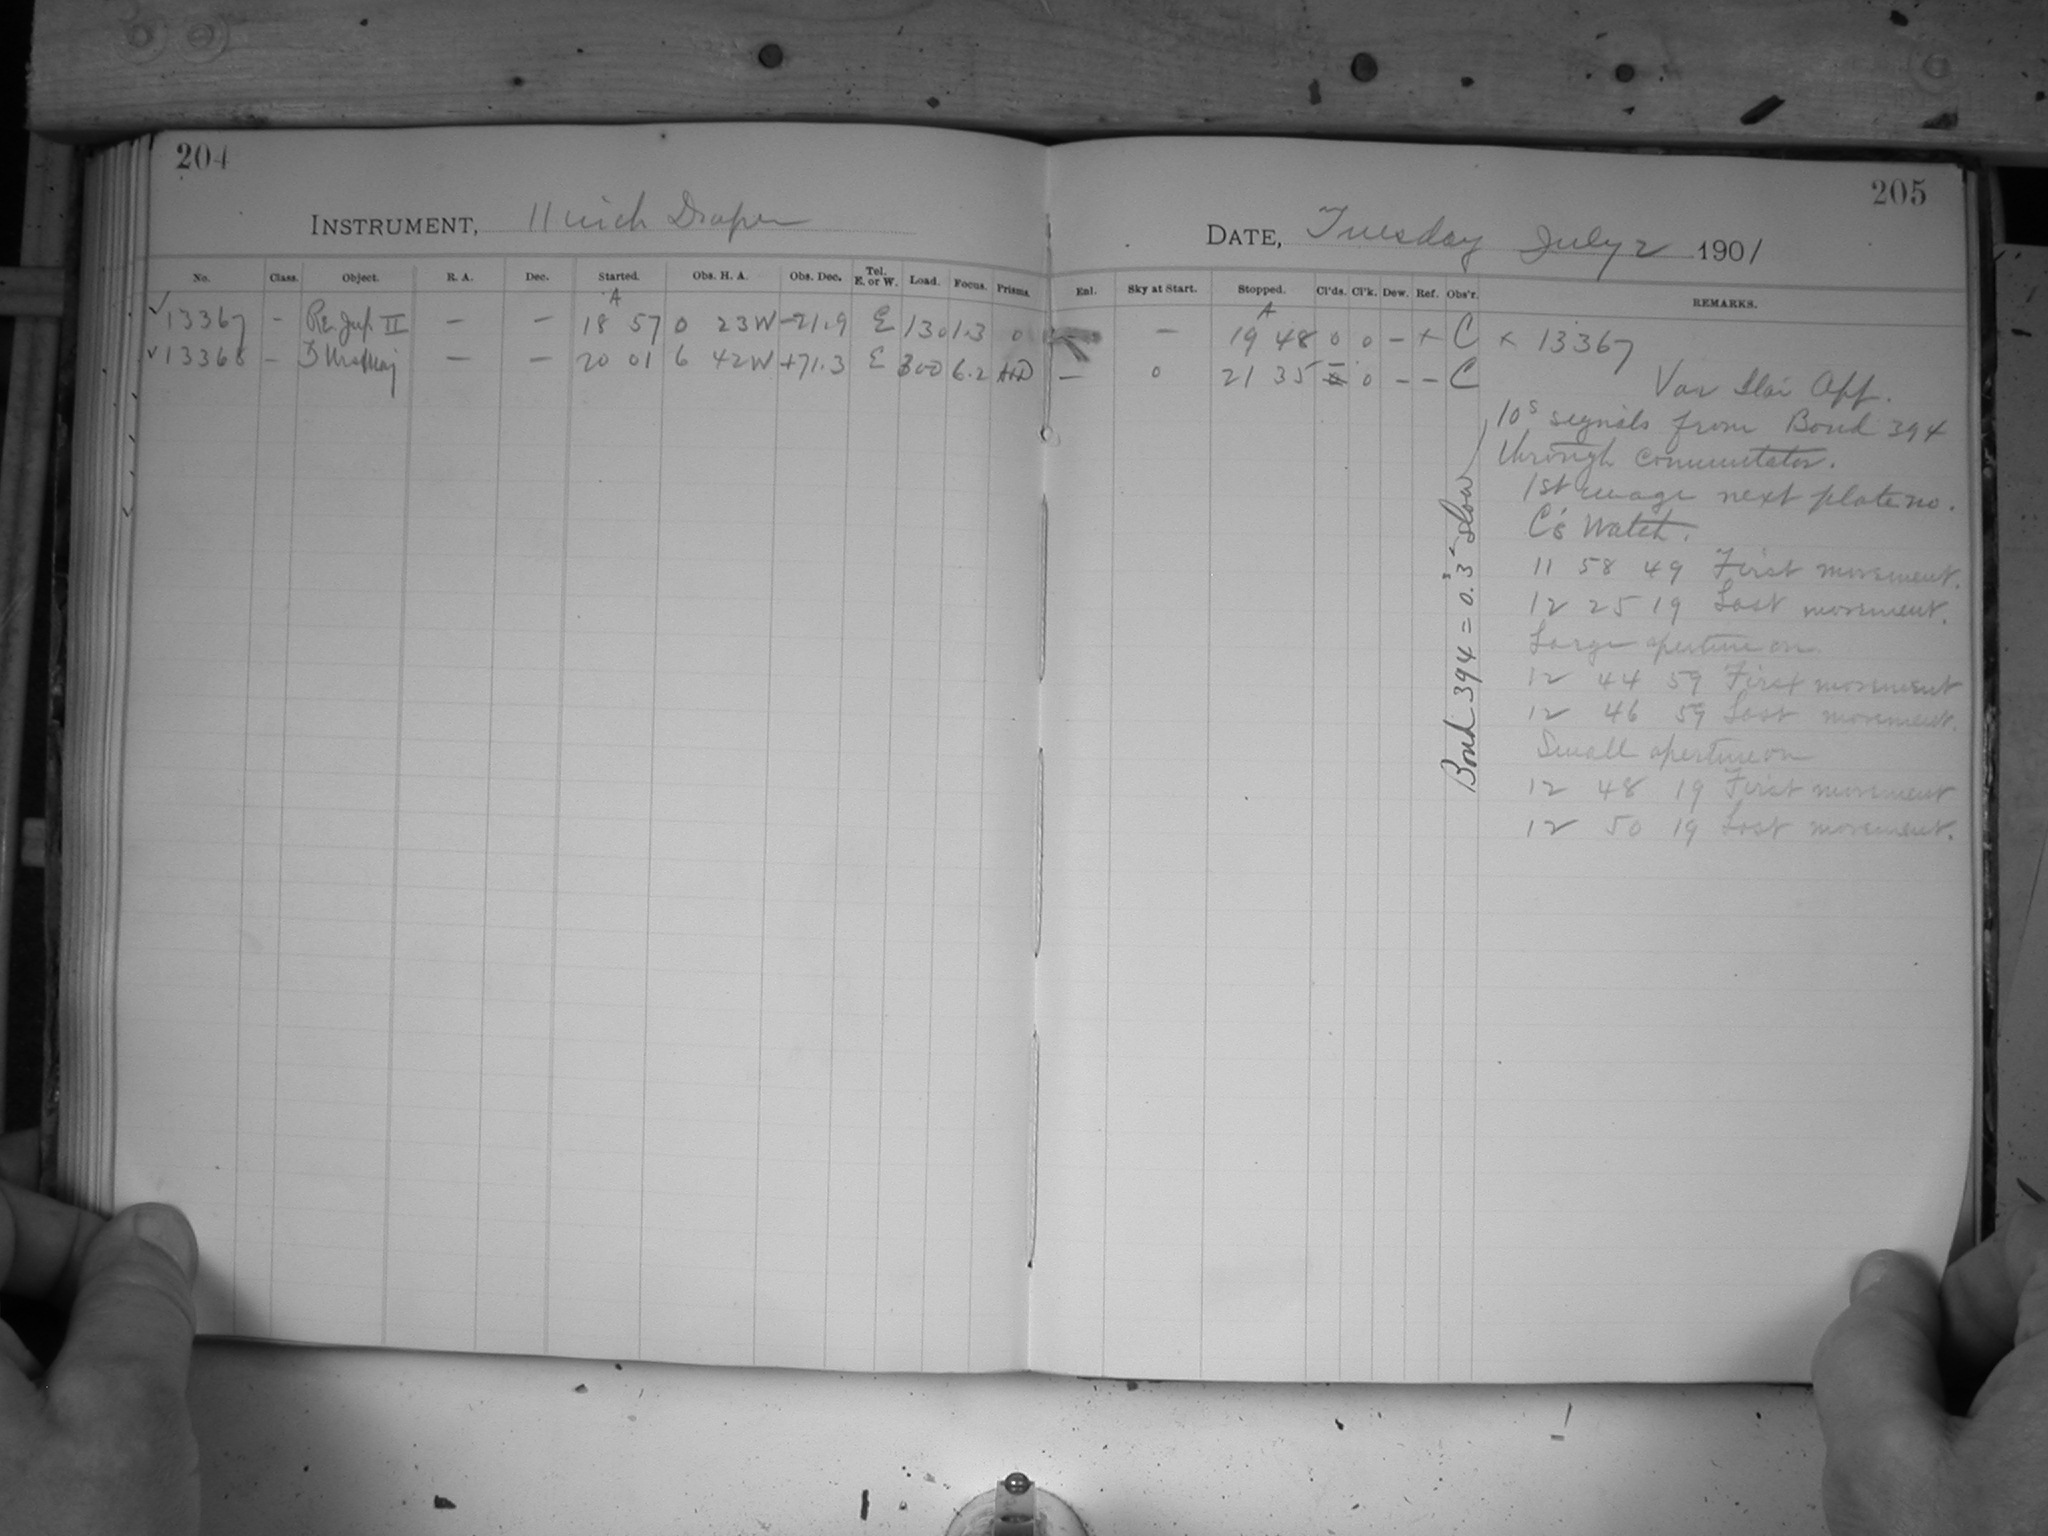 204
INSTRUMENT, 11 inch Draper
No. Class. Object. R. A. Dec. Started. Obs. H. A. Obs. Dec. Tel. E. or W. Load. Focus. Prisms.
A
✓13367 - Re. Jup. II — — 18 57 0 23W -21.9 E 130 1.3 0
✓13368 - Maj — — 20 01 6 42W +71.3 E 300 6.2
205
DATE, Tuesday July 2 1901
Enl. Sky at Start. Stopped. Cl'ds. Cl'k. Dew. Ref. Obs'r. REMARKS.
A
— 19 48 0 0 - + C × 13367
— 0 21 35 0 - - C
Var Star App.
10s signals from Bond 394
through commutator.
1st image next plate no.
C's Watch.
11 58 49 First movement.
12 25 19 Last movement.
Large aperture on
12 44 59 First movement
12 46 59 Last movement.
Small aperture on
12 48 19 First movement
12 50 19 Last movement.
Bond 394 = 0.3s slow